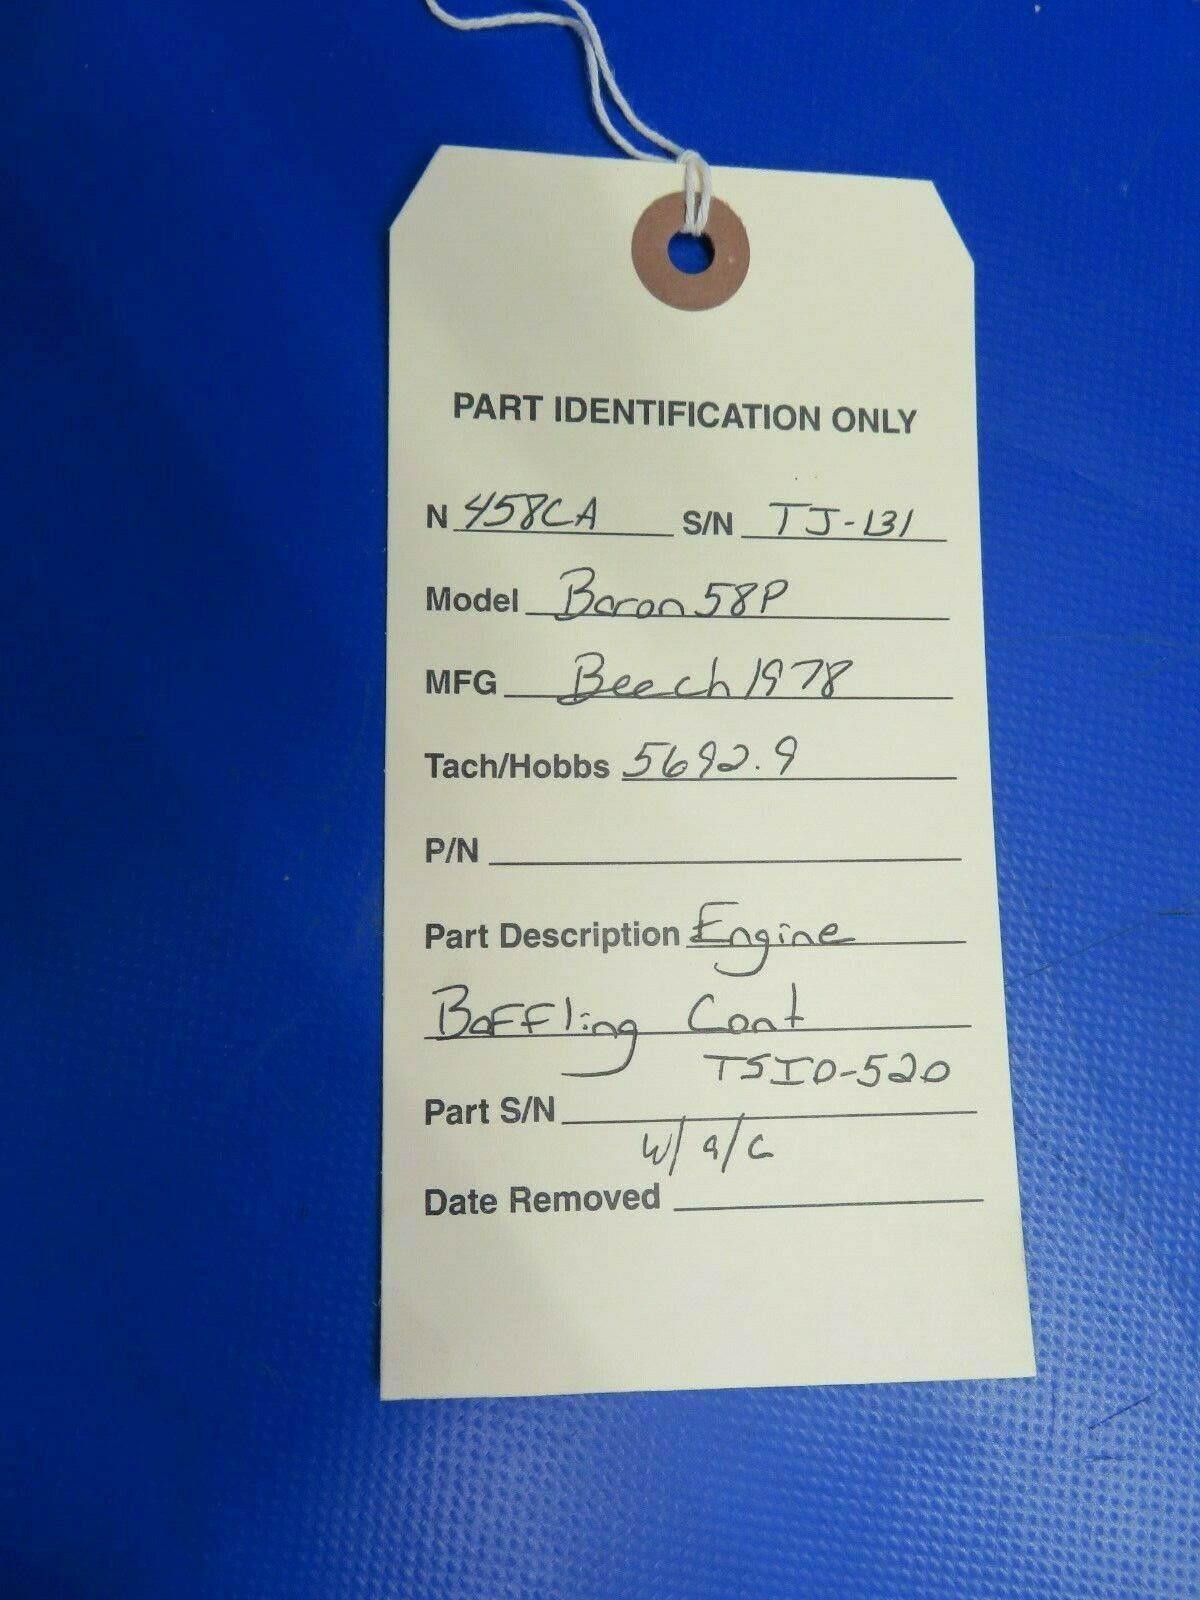 PART IDENTIFICATION ONLY
N 458CA S/N TJ-131
Model Baron 58P
MFG Beech 1978
Tach/Hobbs 5692.9
P/N
Part Description Engine
Baffling Cont
TSIO-520
Part S/N
w/ a/c
Date Removed